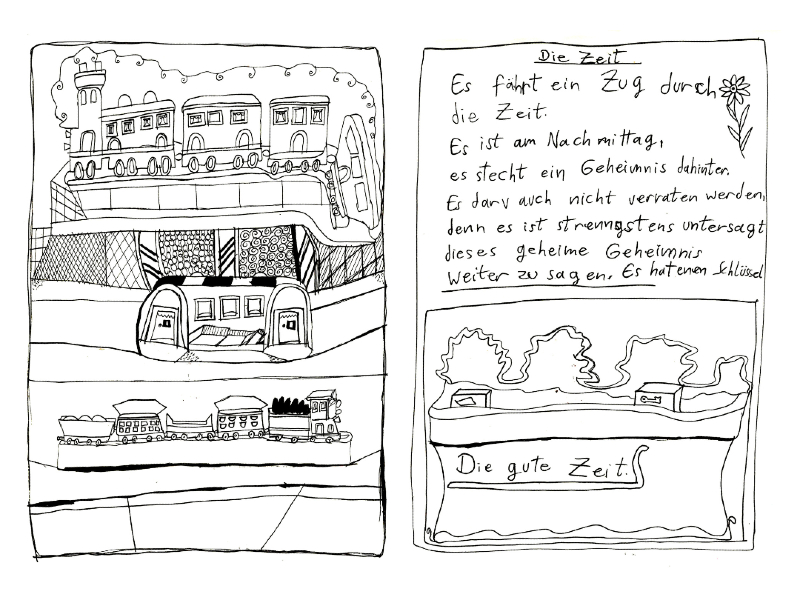 Die Zeit
Es fährt ein Zug dursch
die Zeit.
Es ist am Nachmittag,
es stecht ein Geheimnis dahinter.
Es darv auch nicht verraten werden,
denn es ist strenngstens untersagt
dieses geheime Geheimnis
weiter zu sagen. Es hat enen Schlüssel
Die gute Zeit.